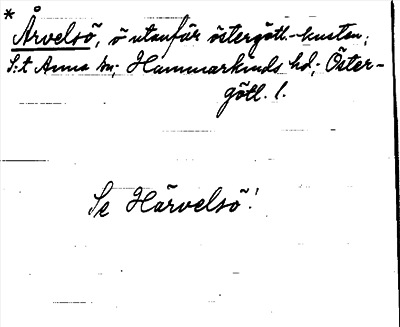 * Årvelsö, ö utanför östergötl.-kusten;
S:t Anna sn; Hammarkinds hd; Öster-
götl. l.
Se Härvelsö!